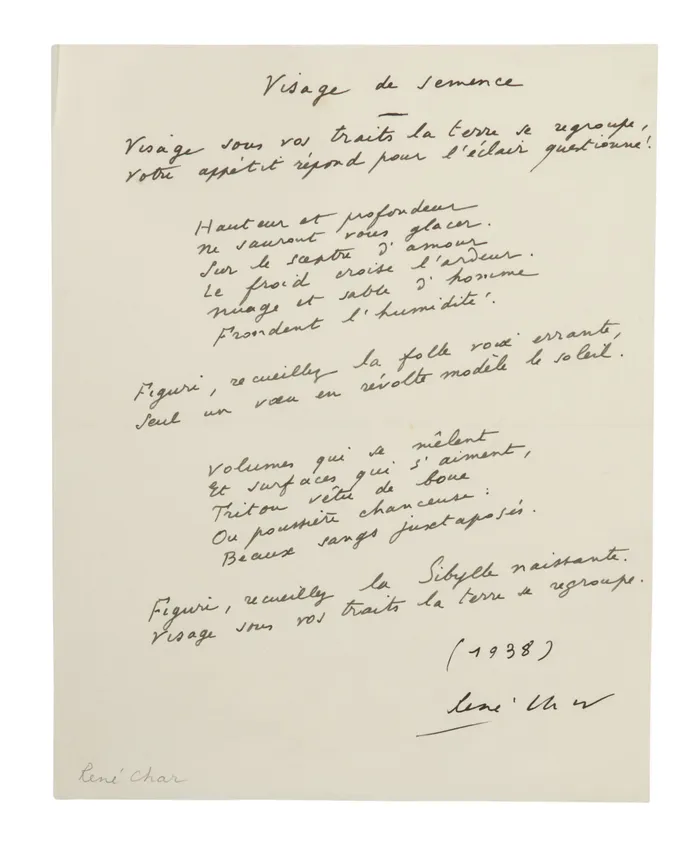 Visage de semence
Visage sous vos traits la terre se regroupe,
Votre appétit répond pour l'éclair questionné.
Hauteur et profondeur
Ne sauront vous glacer.
Sur le sceptre d'amour
Le froid croise l'ardeur.
Nuage et sable d'homme
Frondent l'humidité.
Figuri, recueillez la folle voix errante,
Seul un vœu en révolte modèle le soleil.
Volumes qui se mêlent
Et surfaces qui s'aiment,
Triton vêtu de boue
Ou poussière chanceuse :
Beaux sangs juxtaposés.
Figuri, recueillez la Sibylle naissante.
Visage sous vos traits la terre se regroupe.
(1938)
René Char
René Char